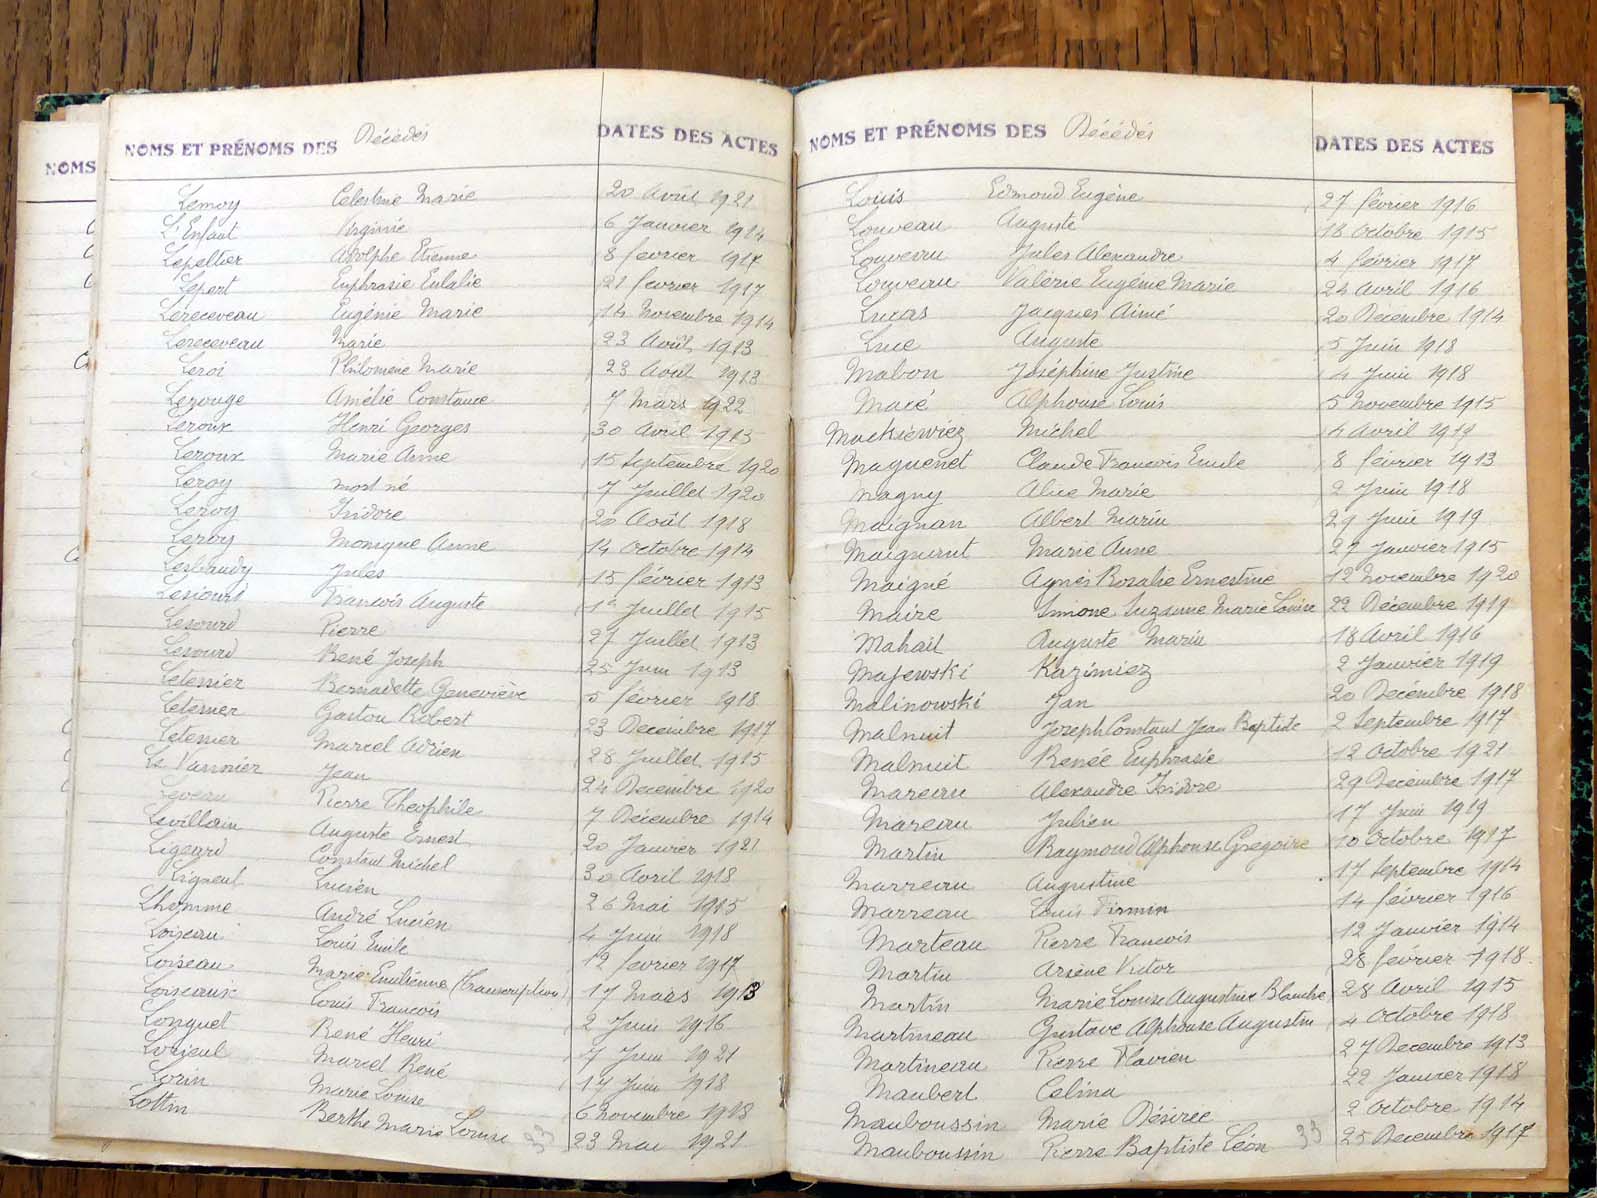 NOMS
NOMS ET PRÉNOMS DES Décédés DATES DES ACTES
Lemoy Celestine Marie 20 Avril 1921
L'Enfant Virginie 6 Janvier 1914
Lepeltier Adolphe Etienne 8 février 1917
Lepert Euphrasie Eulalie 21 fevrier 1917
Lereceveau Eugénie Marie 14 Novembre 1914
Lereceveau Marie 23 Août 1913
Leroi Philomène Marie 23 Août 1913
Lerouge Amélie Constance 7 Mars 1922
Leroux Henri Georges 30 Avril 1915
Leroux Marie Anne 15 Septembre 1920
Leroy mort né 7 Juillet 1920
Leroy Isidore 20 Août 1918
Leroy Monique Anne 14 Octobre 1914
Lesbaudy Jules 15 février 1913
Lesourd François Auguste 1er Juillet 1915
Lesourd Pierre 27 Juillet 1913
Lesourd René Joseph 25 Juin 1913
Letessier Bernadette Geneviève 5 février 1918
Letessier Gaston Robert 23 Decembre 1917
Letessier Marcel Adrien 28 Juillet 1915
Le Vannier Jean 24 Decembre 1920
Leveau Pierre Theophile 7 Décembre 1914
Levillain Auguste Ernest 20 Janvier 1921
Ligeard Constant Michel 30 Avril 1918
Ligneul Lucien 26 Mai 1915
Lhomme André Lucien 4 Juin 1918
Loiseau Louis Emile 12 fevrier 1917
Loiseau Marie Emilienne (Transcription) 17 Mars 1913
Loiseaux Louis François 2 Juin 1916
Longuet René Henri 7 Juin 1921
Lorieul Marcel René 17 Juin 1918
Lorin Marie Louise 6 Novembre 1918
Lottin Berthe Marie Louise 23 Mai 1921
33
NOMS ET PRÉNOMS DES Décédés DATES DES ACTES
Louis Edmond Eugène 27 février 1916
Louveau Auguste 18 Octobre 1915
Louveau Jules Alexandre 4 février 1917
Louveau Valérie Eugénie Marie 24 Avril 1916
Lucas Jacques Aimé 20 Decembre 1914
Luce Auguste 5 Juin 1918
Mabon Joséphine Justine 4 Juin 1918
Macé Alphonse Louis 5 Novembre 1915
Mackiewiez Michel 4 Avril 1919
Maguenet Claude François Emile 8 février 1913
Magny Alice Marie 2 Juin 1918
Maignan Albert Marin 29 Juin 1919
Maignent Marie Anne 27 Janvier 1915
Maigné Agnès Rosalie Ernestine 12 Novembre 1920
Maire Simone Suzanne Marie Louise 22 Décembre 1919
Mahait Auguste Marin 18 Avril 1916
Majewski Kazimiez 2 Janvier 1919
Malinowski Jan 20 Decémbre 1918
Malnuit Joseph Constant Jean Baptiste 2 Septembre 1917
Malnuit Renée Euphrasie 12 Octobre 1921
Mareau Alexandre Isidore 29 Decembre 1917
Mareau Julien 17 Juin 1919
Martin Raymond Alphonse Gregoire 10 Octobre 1917
Marreau Augustine 17 Septembre 1914
Marreau Louis Firmin 14 février 1916
Marteau Pierre François 12 Janvier 1914
Martin Arsène Victor 28 février 1918
Martin Marie Louise Augustine Blanche 28 Avril 1915
Martineau Gustave Alphonse Augustin 4 Octobre 1918
Martineau Pierre Flavien 27 Decembre 1913
Maubert Celina 22 Janvier 1918
Mauboussin Marie Désirée 2 Octobre 1914
Mauboussin Pierre Baptiste Léon 25 Decembre 1917
33